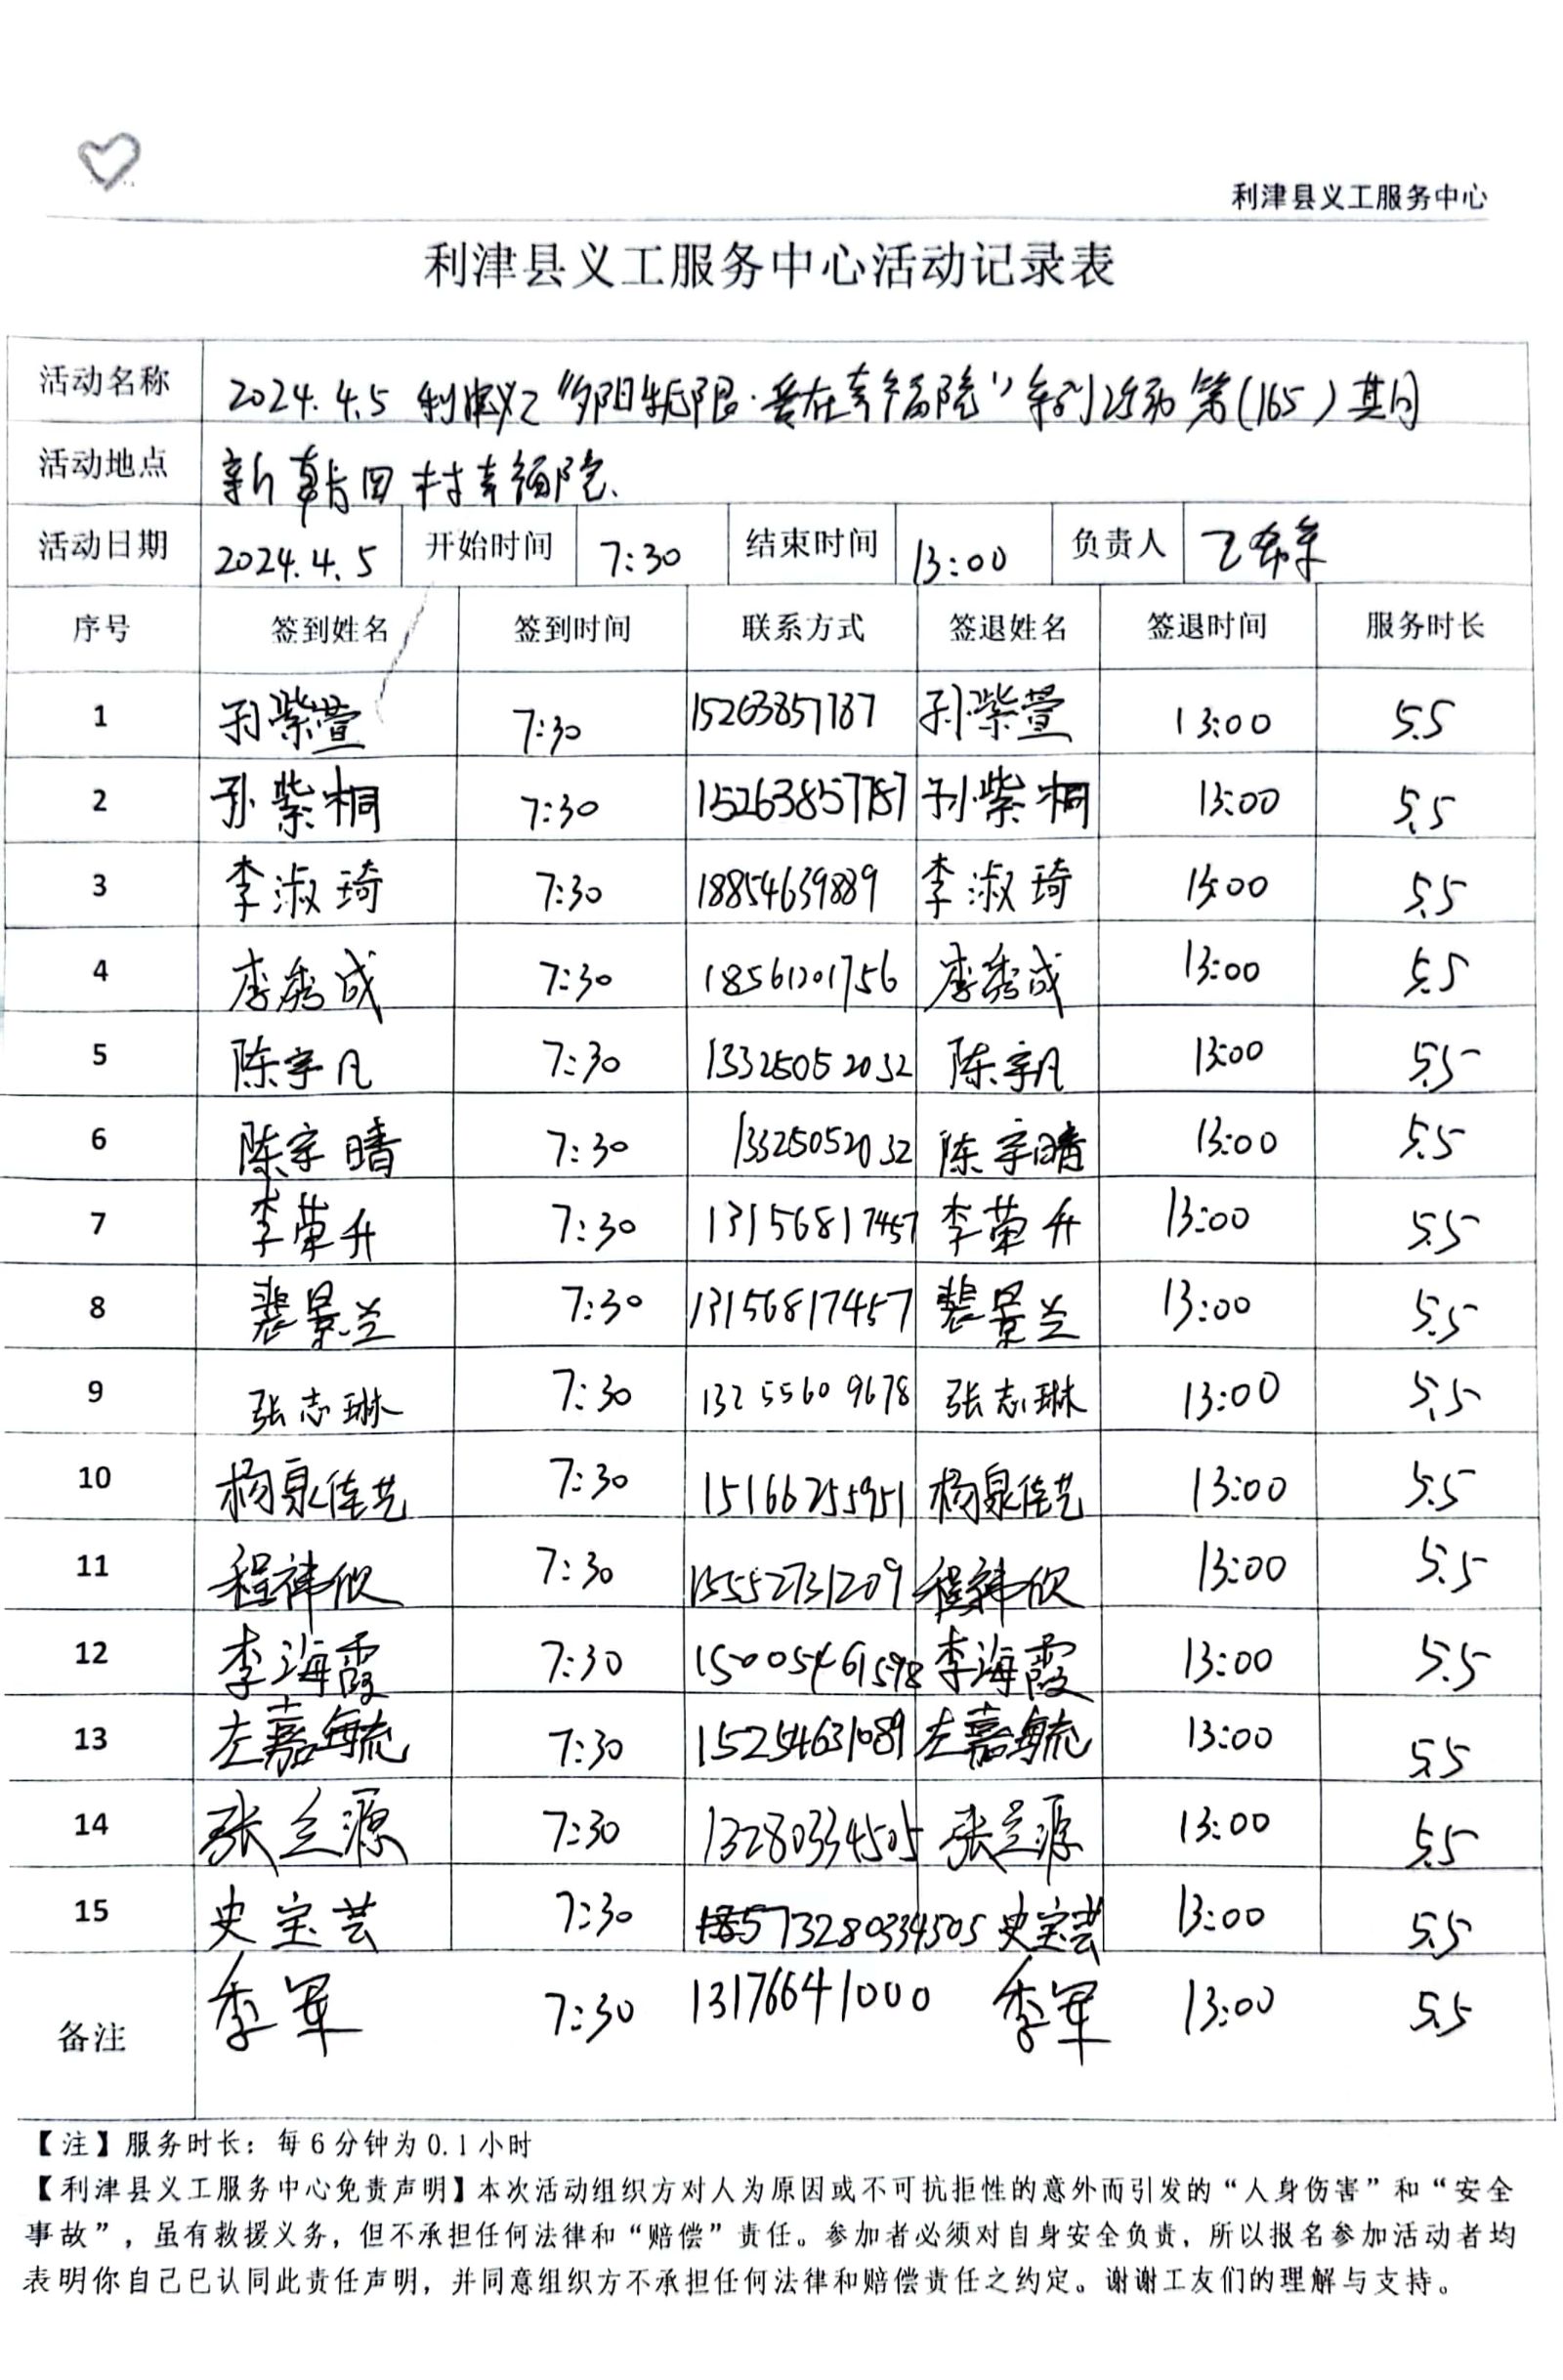 利津县义工服务中心
利津县义工服务中心活动记录表
活动名称 2024.4.5 利津义工“夕阳无限·爱在幸福院”系列活动 第(165)期
活动地点 新韩四村幸福院.
活动日期 2024.4.5 开始时间 7:30 结束时间 13:00 负责人
序号 签到姓名 签到时间 联系方式 签退姓名 签退时间 服务时长
1 孙紫萱 7:30 孙紫萱 13:00 5.5
2 孙紫桐 7:30 15263857787 孙紫桐 13:00 5.5
3 李淑琦 7:30 18854639889 李淑琦 13:00 5.5
4 李秀成 7:30 18561201756 李秀成 13:00 5.5
5 陈宇凡 7:30 13325052032 陈宇凡 13:00 5.5
6 陈宇晴 7:30 13325052032 陈宇晴 13:00 5.5
7 李荣升 7:30 13156817457 李荣升 13:00 5.5
8 裴景兰 7:30 13156817457 裴景兰 13:00 5.5
9 张志琳 7:30 13255609678 张志琳 13:00 5.5
10 杨泉佳艺 7:30 15166255951 杨泉佳艺 13:00 5.5
11 程祎欣 7:30 15552731209 程祎欣 13:00 5.5
12 李海霞 7:30 15005461598 李海霞 13:00 5.5
13 左嘉毓 7:30 15254631089 左嘉毓 13:00 5.5
14 张兰源 7:30 13280334505 张兰源 13:00 5.5
15 史宝芸 7:30 13280334505 史宝芸 13:00 5.5
备注 季军 7:30 13176641000 季军 13:00 5.5
【注】服务时长：每6分钟为0.1小时
【利津县义工服务中心免责声明】本次活动组织方对人为原因或不可抗拒性的意外而引发的“人身伤害”和“安全
事故”，虽有救援义务，但不承担任何法律和“赔偿”责任。参加者必须对自身安全负责，所以报名参加活动者均
表明你自己已认同此责任声明，并同意组织方不承担任何法律和赔偿责任之约定。谢谢工友们的理解与支持。